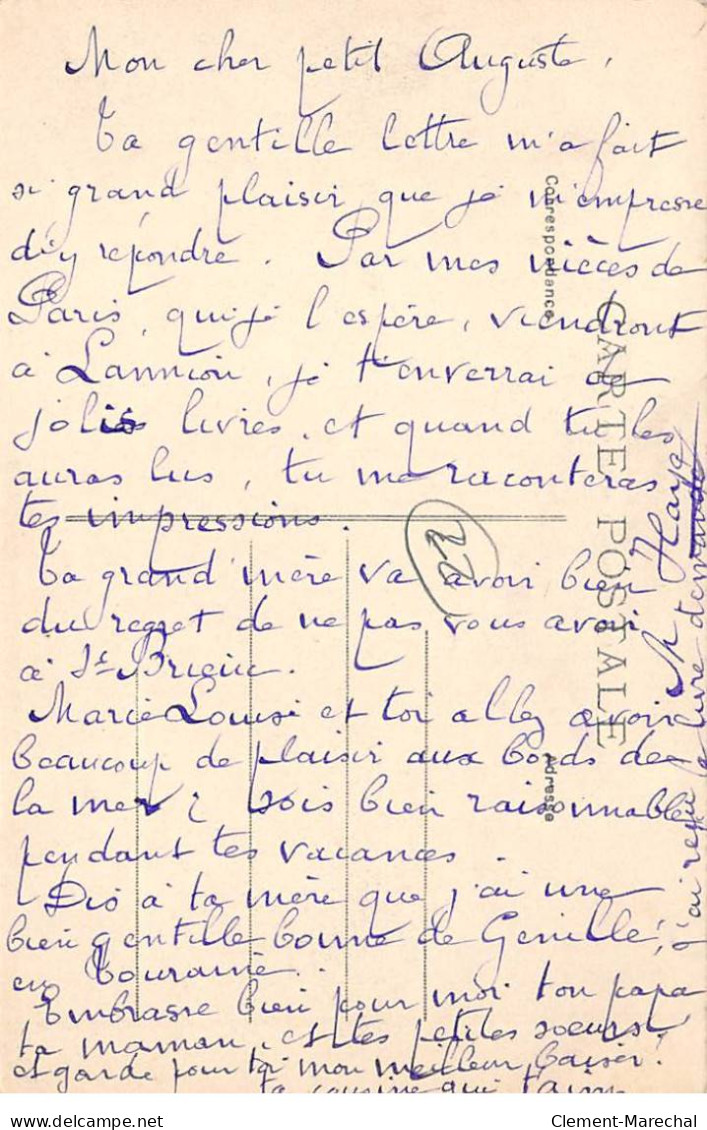 Mon cher petit Auguste,
Ta gentille lettre m'a fait
si grand plaisir que je m'empresse
d'y répondre. Par mes nièces de
Paris, qui je l'espère, viendront
à Lannion, je t'enverrai de
jolis livres, et quand tu les
auras lus, tu me raconteras
tes impressions.
Ta grand'mère va avoir bien
du regret de ne pas vous avoir
à St Brieuc.
Marie Louise et toi allez avoir
beaucoup de plaisir aux bords de
la mer? Sois bien raisonnable
pendant tes vacances.
Dis à ta mère que j'ai une
bien gentille bonne de Genillé,
en Touraine..
Embrasse bien pour moi ton papa
ta maman, et tes petites soeurs
et garde pour toi mon meilleur baiser!
ta cousine qui t'aime
j'ai reçu le livre demandé
Correspondance
CARTE POSTALE
Adresse
22
delcampe.net
Clement-Marechal